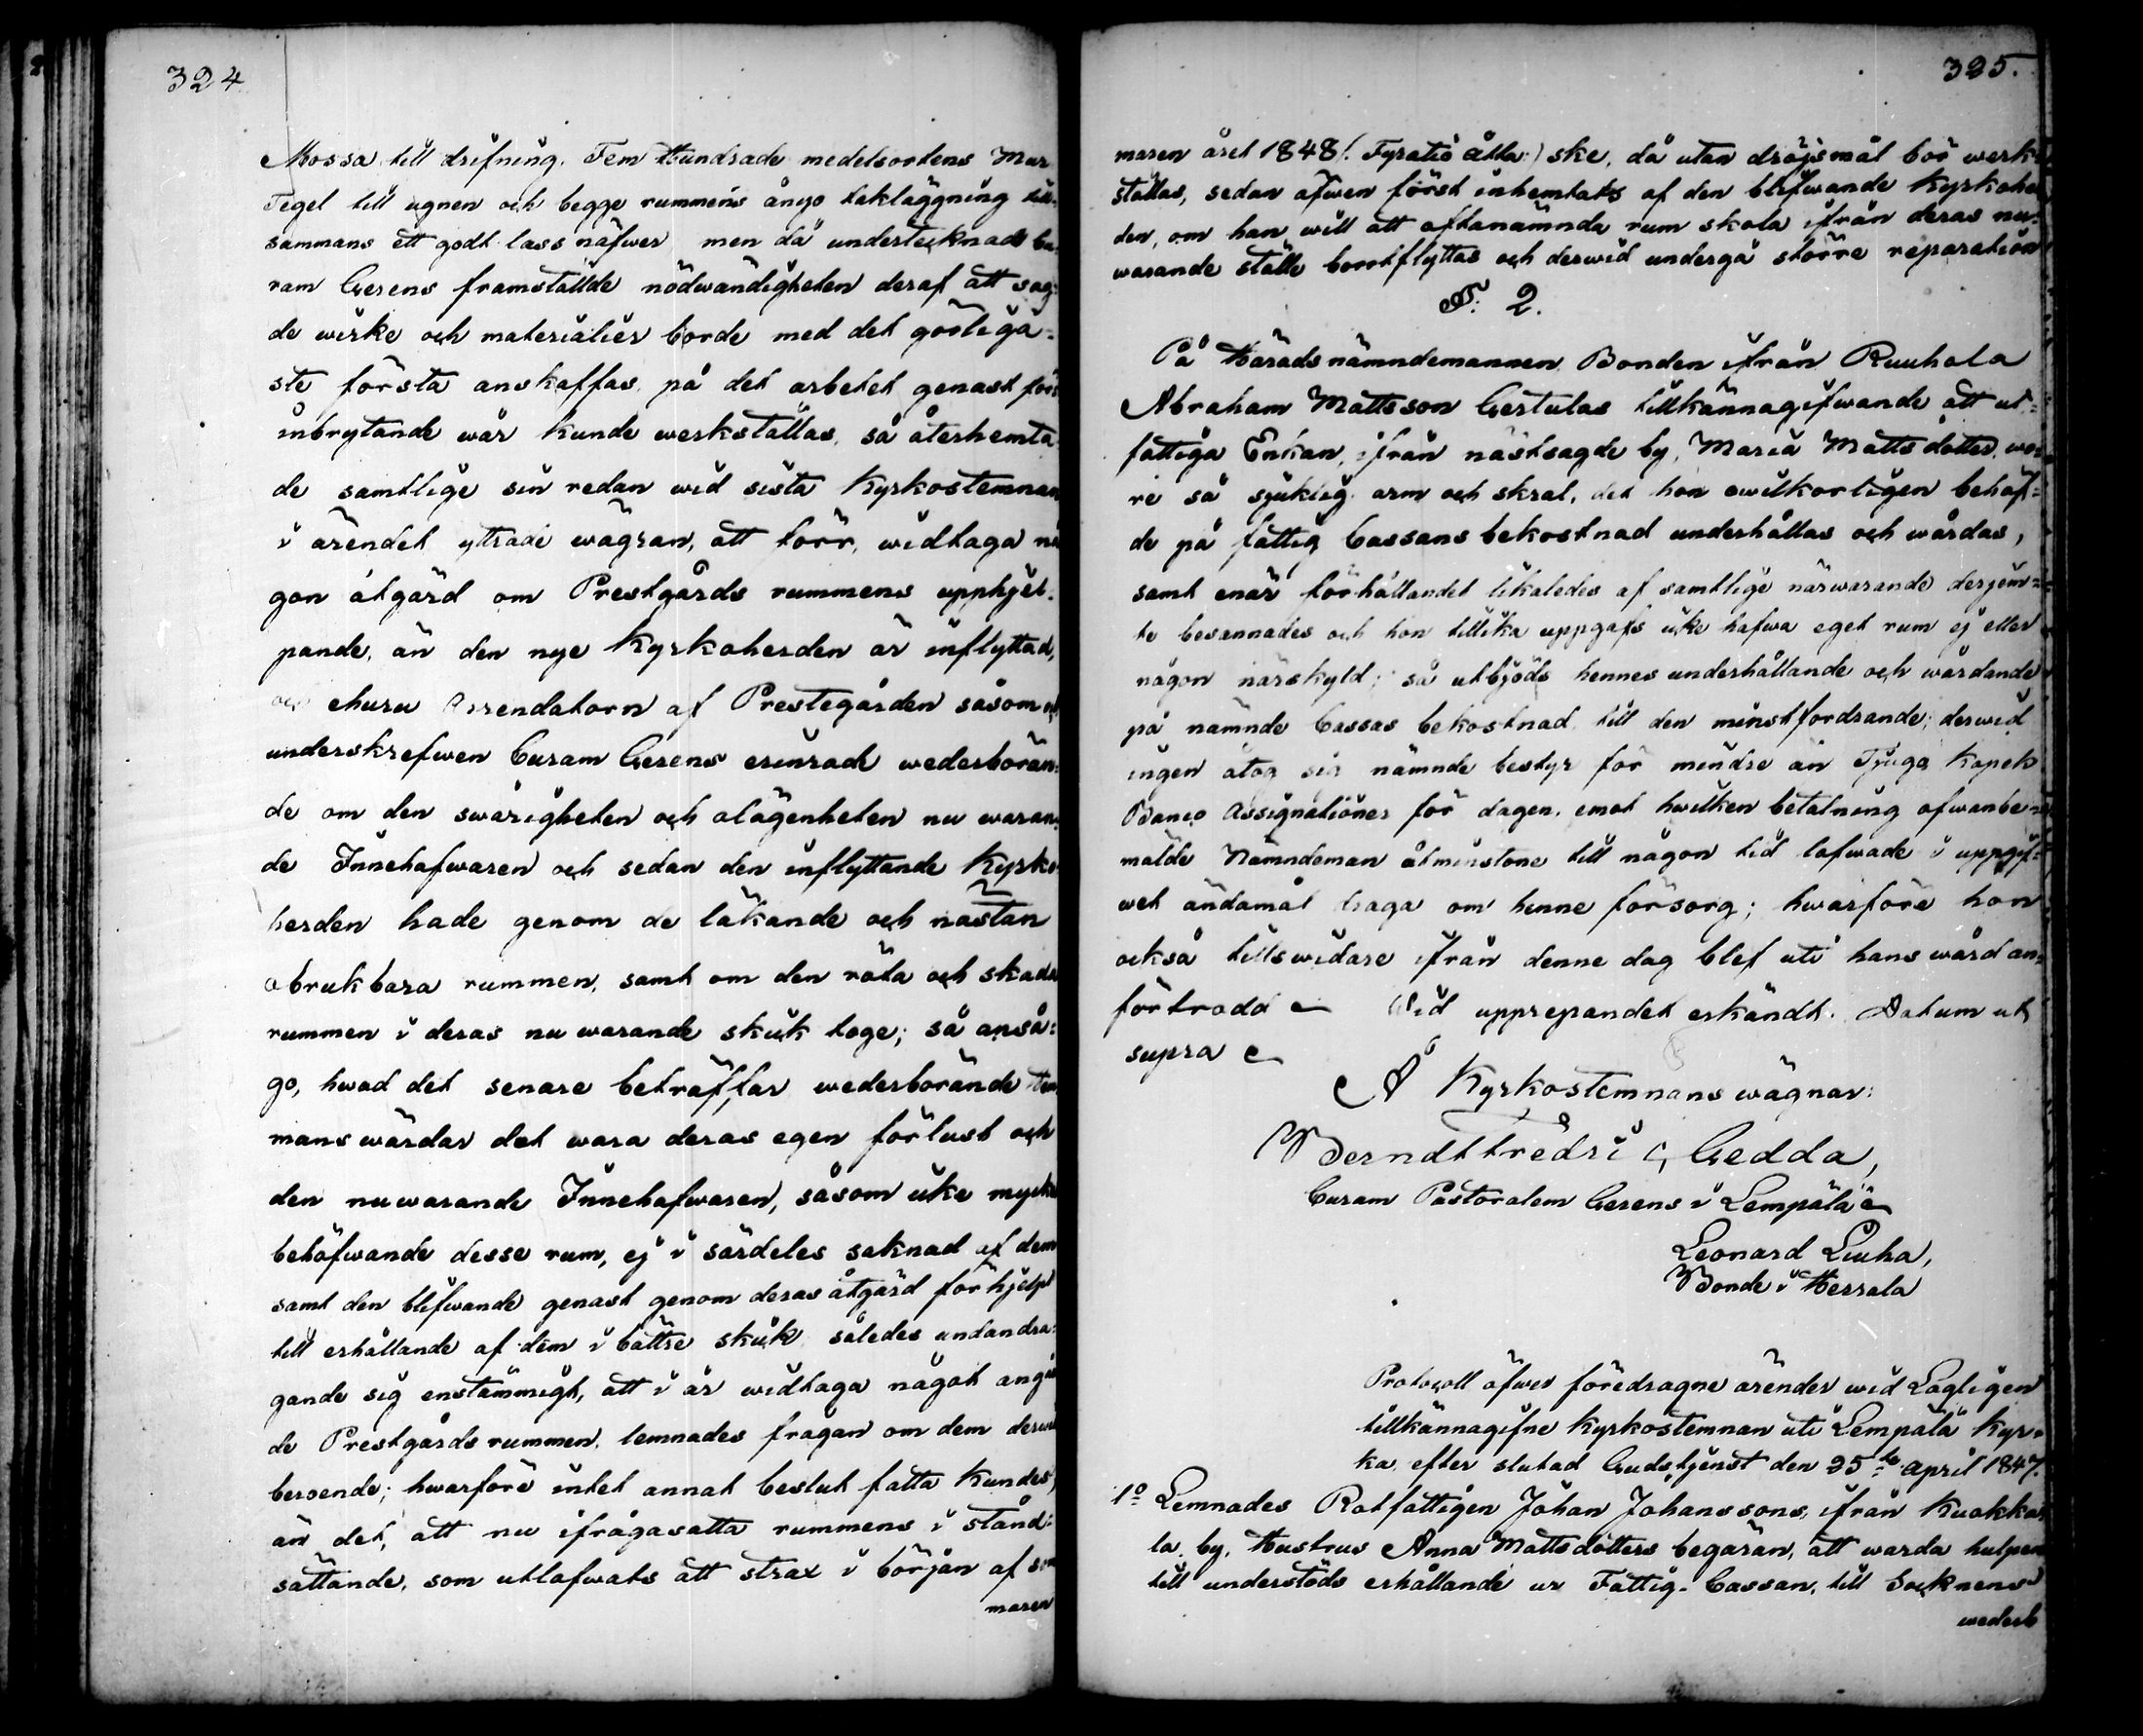 324
Mossa till drifning. Fem Hundrade medelsortens Mur
Tegel till ugnen och begge rummens ånyo takläggning till-
sammans ett godt lass näfwer men då undertecknade Cu-
ram Gerens framställde nödwändigheten deraf att sag-
de wirke och materialier borde med det görliga-
ste första anskaffas, på det arbetet genast för
inbrytande wår kunde werkställas, så återhemta-
de samtlige sin redan wid sista Kyrkostemnan
i ärendet yttrade wägran, att förr, widtaga nå
gon åtgärd om Prestgårds rummens upphjel-
pande, än den nye Kyrkoherden är inflyttad,
och ehuru Arrendatorn af Prestegården såsom ock
underskrefwen Curam Gerens erinrade wederbören-
de om den swårigheten och olägenheten nu waran-
de Innehafwaren och sedan den inflyttande Kyrko-
herden hade genom de läkande och nästan
obrukbara rummen, samt om den röta och skada
rummen i deras nu warande skick toge; så anså-
go, hwad det senare beträffar wederbörande Hem
mans wärdar det wara deras egen förlust och
den nuwarande Innehafwaren, såsom icke mycket
behöfwande desse rum, ej i särdeles saknad af dem
samt den blifwande genast genom deras åtgärd förhjelpt
till erhållande af dem i bättre skick således undandra-
gande sig enstämmigt, att i år widtaga något angåen
de Prestgårds rummen, lemnades frågan om dem derwid
beroende; hwarföre intet annat beslut fatta kundes,
än det, att nu ifrågasatta rummens i stånd-
sättande, som utlofwats att strax i början af som
maren
325.
maren året 1848 (: Fyratio åtta:) ske, då utan dröjsmål bör werk-
ställas, sedan äfwen först inhemtats af den blifwande Kyrkoher
den, om han will att oftanämnda rum skola ifrån deras nu-
warande ställe bortflyttas och derwid undergå större reparation
§. 2.
På Häradsnämndemannen Bonden ifrån Ruuhola
Abraham Mattsson Gertulas tillkännagifwande att ut-
fattiga Enkan, ifrån nästsagde by, Maria Mattsdotter wo-
re så sjuklig arm och skral, det hon owilkorligen behöf-
de på fattig Cassans bekostnad underhållas och wårdas,
samt enär förhållandet likaledes af samtlige närwarande derjem-
te besannades och hon tillika uppgafs icke hafwa eget rum ej eller
någon närskyld; så utbjöds hennes underhållande och wårdande
på nämnde Cassas bekostnad till den minstfordrande; derwid
ingen åtog sig nämnde bestyr för mindre än Tjugo Kopek
Banco Assignationer för dagen, emot hwilken betalning ofwanbe-
mälde Nämndeman åtminstone till någon tid lofwade i uppgif-
wet ändamål draga om henne försorg; hwarföre hon
också tillswidare ifrån denne dag blef uti hans wård an-
förtrodd Wid upprepandet erkändt. Datum ut
supra
På Kyrkostemnans wägnar:
Berndt Fredric Gedda,
Curam Pastoralem Gerens i Lempälä
Leonard Liuha,
Bonde i Herrala
Protocoll öfwer föredragne ärender wid Lagligen
tillkännagifne Kyrkostemnan uti Lempälä Kyr-
ka efter slutad Gudstjenst den 25te April 1847.
1o Lemnades Rotfattigen Johan Johanssons, ifrån Kuokka-
la by, Hustrus Anna Mattsdotters begäran, att warda hulpen
till understöds erhållande ur Fattig-Cassan, till Socknens
wederb